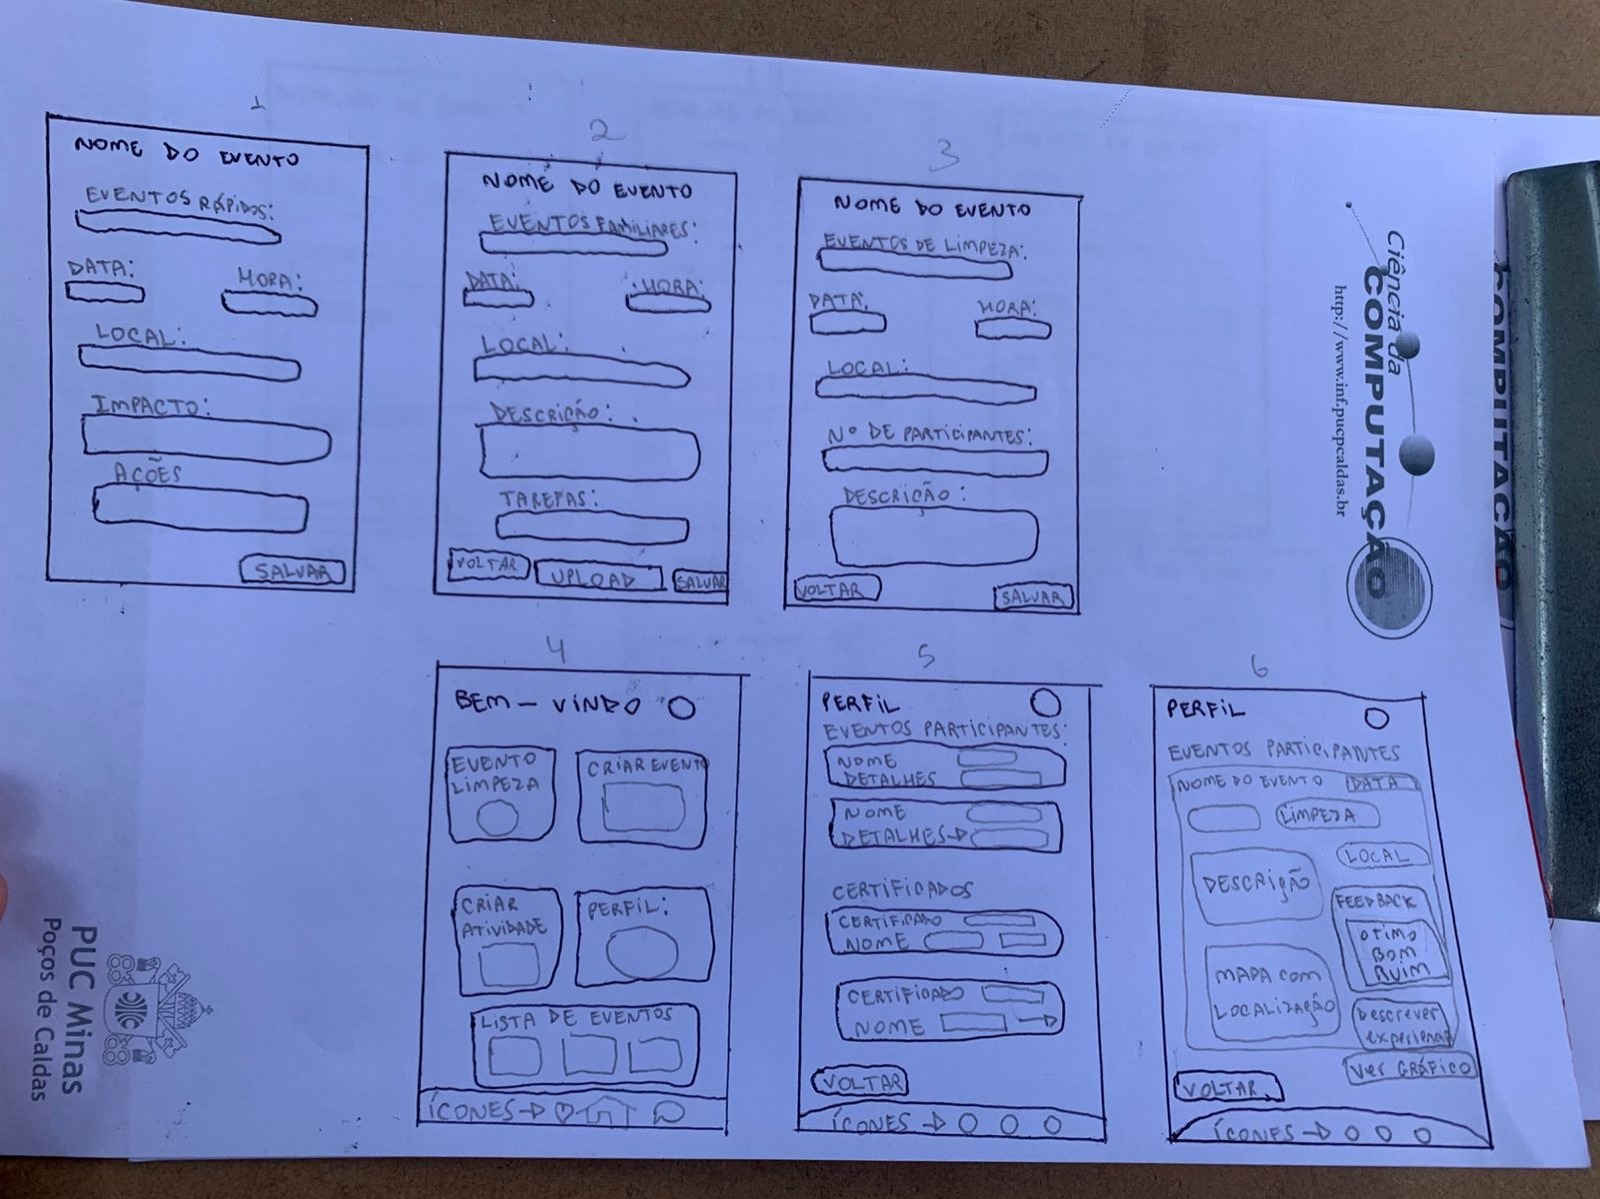 1
NOME DO EVENTO
EVENTOS RÁPIDOS:
DATA:
HORA:
LOCAL:
IMPACTO:
AÇÕES
SALVAR
2
NOME DO EVENTO
EVENTOS FAMILIARES:
DATA:
HORA:
LOCAL:
DESCRIÇÃO:
TAREFAS:
VOLTAR
UPLOAD
SALVAR
3
NOME DO EVENTO
EVENTOS DE LIMPEZA:
DATA:
HORA:
LOCAL:
Nº DE PARTICIPANTES:
DESCRIÇÃO:
VOLTAR
SALVAR
4
BEM-VINDO
EVENTO
LIMPEZA
CRIAR EVENTO
CRIAR
ATIVIDADE
PERFIL:
LISTA DE EVENTOS
ÍCONES
5
PERFIL
EVENTOS PARTICIPANTES:
NOME
DETALHES
NOME
DETALHES
CERTIFICADOS
CERTIFICADO
NOME
CERTIFICADO
NOME
VOLTAR
ÍCONES
6
PERFIL
EVENTOS PARTICIPANTES
NOME DO EVENTO
DATA
LIMPEZA
LOCAL
DESCRIÇÃO
FEEDBACK
OTIMO
BOM
RUIM
MAPA COM
LOCALIZAÇÃO
Descrever
VER GRÁFICO
VOLTAR
ÍCONES
Ciência da
COMPUTAÇÃO
http://www.inf.pucpcaldas.br
COMPUTAÇÃO
PUC Minas
Poços de Caldas